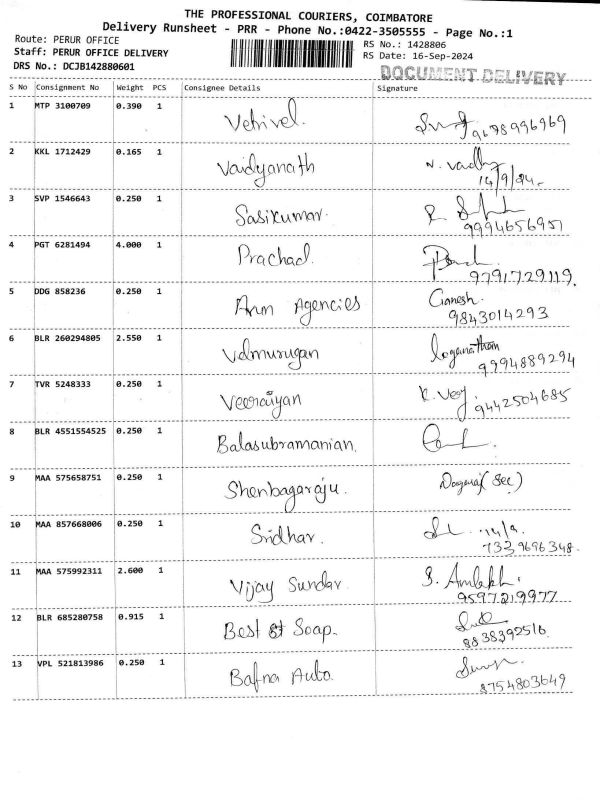 THE PROFESSIONAL COURIERS, COIMBATORE
Delivery Runsheet - PRR - Phone No.:0422-3505555 - Page No.:1
Route: PERUR OFFICE RS No.: 1428806
Staff: PERUR OFFICE DELIVERY RS Date: 16-Sep-2024
DRS No.: DCJB142880601 DOCUMENT DELIVERY
S No Consignment No Weight PCS Consignee Details Signature
1 MTP 3100709 0.390 1 Vetrivel.
9678996969
2 KKL 1712429 0.165 1 Vaidyanath
14/9/24
3 SVP 1546643 0.250 1 Sasikumar.
9994656951
4 PGT 6281494 4.000 1 Prachad.
9791729119.
5 DDG 858236 0.250 1 Arun Agencies Ganesh.
9843014293
6 BLR 260294805 2.550 1 Velmurugan loganatham
9994889294
7 TVR 5248333 0.250 1 Veeraiyan
9442504685
8 BLR 4551554525 0.250 1 Balasubramanian.
9 MAA 575658751 0.250 1 Shenbagaraju. (Sec)
10 MAA 857668006 0.250 1 Sridhar. 14/9.
7339696348.
11 MAA 575992311 2.600 1 Vijay Sundar.
9597219977
12 BLR 685280758 0.915 1 Best Soap.
8838392516
13 VPL 521813986 0.250 1 Bafna Auto.
8754803649